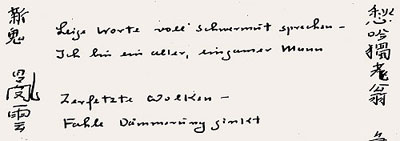 新鬼
雲
Leise Worte voll Schwermut sprechen –
Ich bin ein alter, einsamer Mann
Zerfetzte Wolken –
Fahle Dämmerung sinkt
愁吟獨老翁